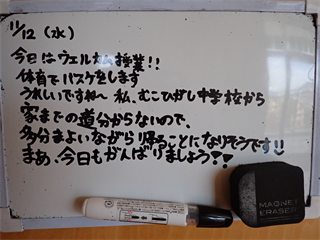 11/12 (水)
今日はウェルカム授業!!
体育でバスケをします
うれしいですね〜 私、むこひがし中学校から
家までの道分からないので、
多分まよいながら帰ることになりそうです!!
まあ、今日もがんばりましょう??
MAGNET
ERASER